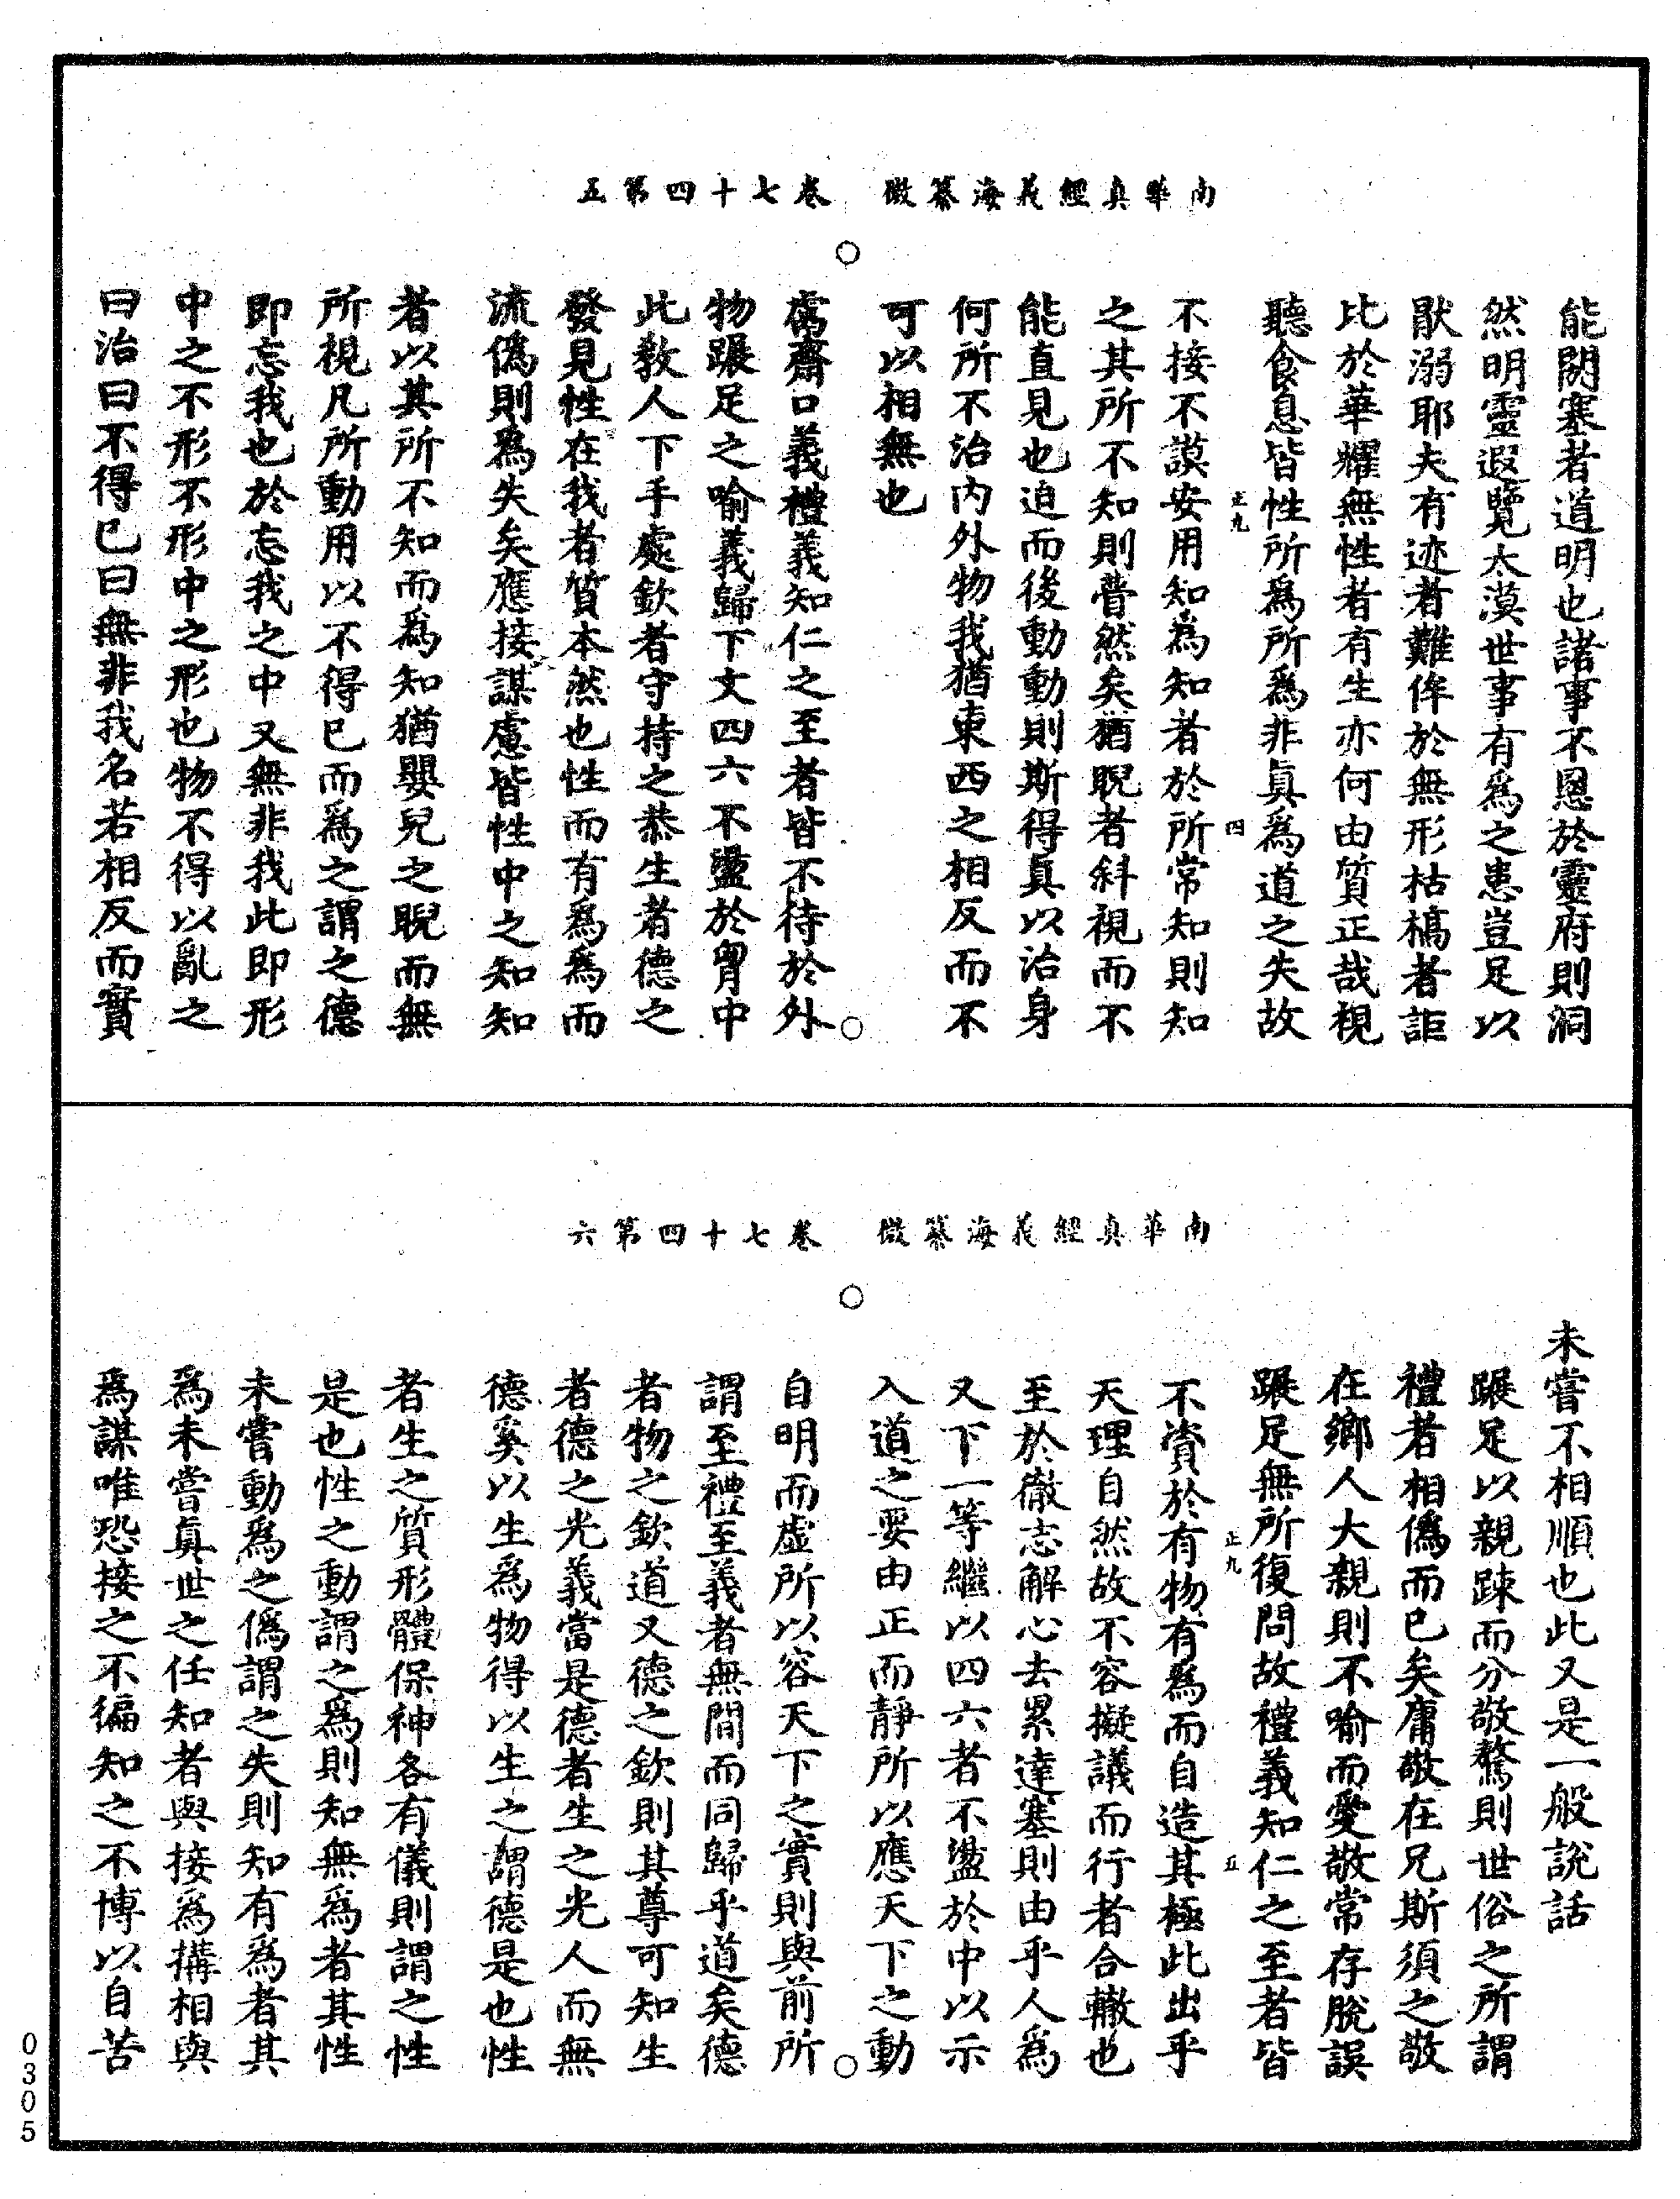 南華真經義海纂微　卷七十四第五
能閼塞者道明也諸事不恩於靈府則洞
然明靈遐覽太漠世事有爲之患豈足以
猒溺耶夫有迹者難侔於無形枯槁者詎
比於華耀無性者有生亦何由質正哉視
聽食息皆性所爲所爲非真爲道之失故
正九　四
不接不謨安用知爲知者於所常知則知
之其所不知則瞢然矣猶睨者斜視而不
能直見也迫而後動動則斯得真以治身
何所不治内外物我猶東西之相反而不
可以相無也
鬳齋口義禮義知仁之至者皆不待於外
物蹍足之喻義歸下文四六不盪於胷中
此教人下手處欽者守持之恭生者德之
發見性在我者質本然也性而有爲爲而
流僞則爲失矣應接謀慮皆性中之知知
者以其所不知而爲知猶嬰兒之睨而無
所視凡所動用以不得已而爲之謂之德
即忘我也於忘我之中又無非我此即形
中之不形不形中之形也物不得以亂之
曰治曰不得已曰無非我名若相反而實
南華真經義海纂微　卷七十四第六
未嘗不相順也此又是一般說話
蹍足以親踈而分敬驁則世俗之所謂
禮者相僞而已矣庸敬在兄斯須之敬
在鄉人大親則不喻而愛敬常存脫誤
蹍足無所復問故禮義知仁之至者皆
正九　五
不資於有物有爲而自造其極此出乎
天理自然故不容擬議而行者合轍也
至於徹志解心去累達塞則由乎人爲
又下一等繼以四六者不盪於中以示
入道之要由正而靜所以應天下之動
自明而虛所以容天下之實則與前所
謂至禮至義者無間而同歸乎道矣德
者物之欽道又德之欽則其尊可知生
者德之光義當是德者生之光人而無
德奚以生爲物得以生之謂德是也性
者生之質形體保神各有儀則謂之性
是也性之動謂之爲則知無爲者其性
未嘗動爲之僞謂之失則知有爲者其
爲未嘗真世之任知者與接爲搆相與
爲謀唯恐接之不徧知之不博以自苦
0305